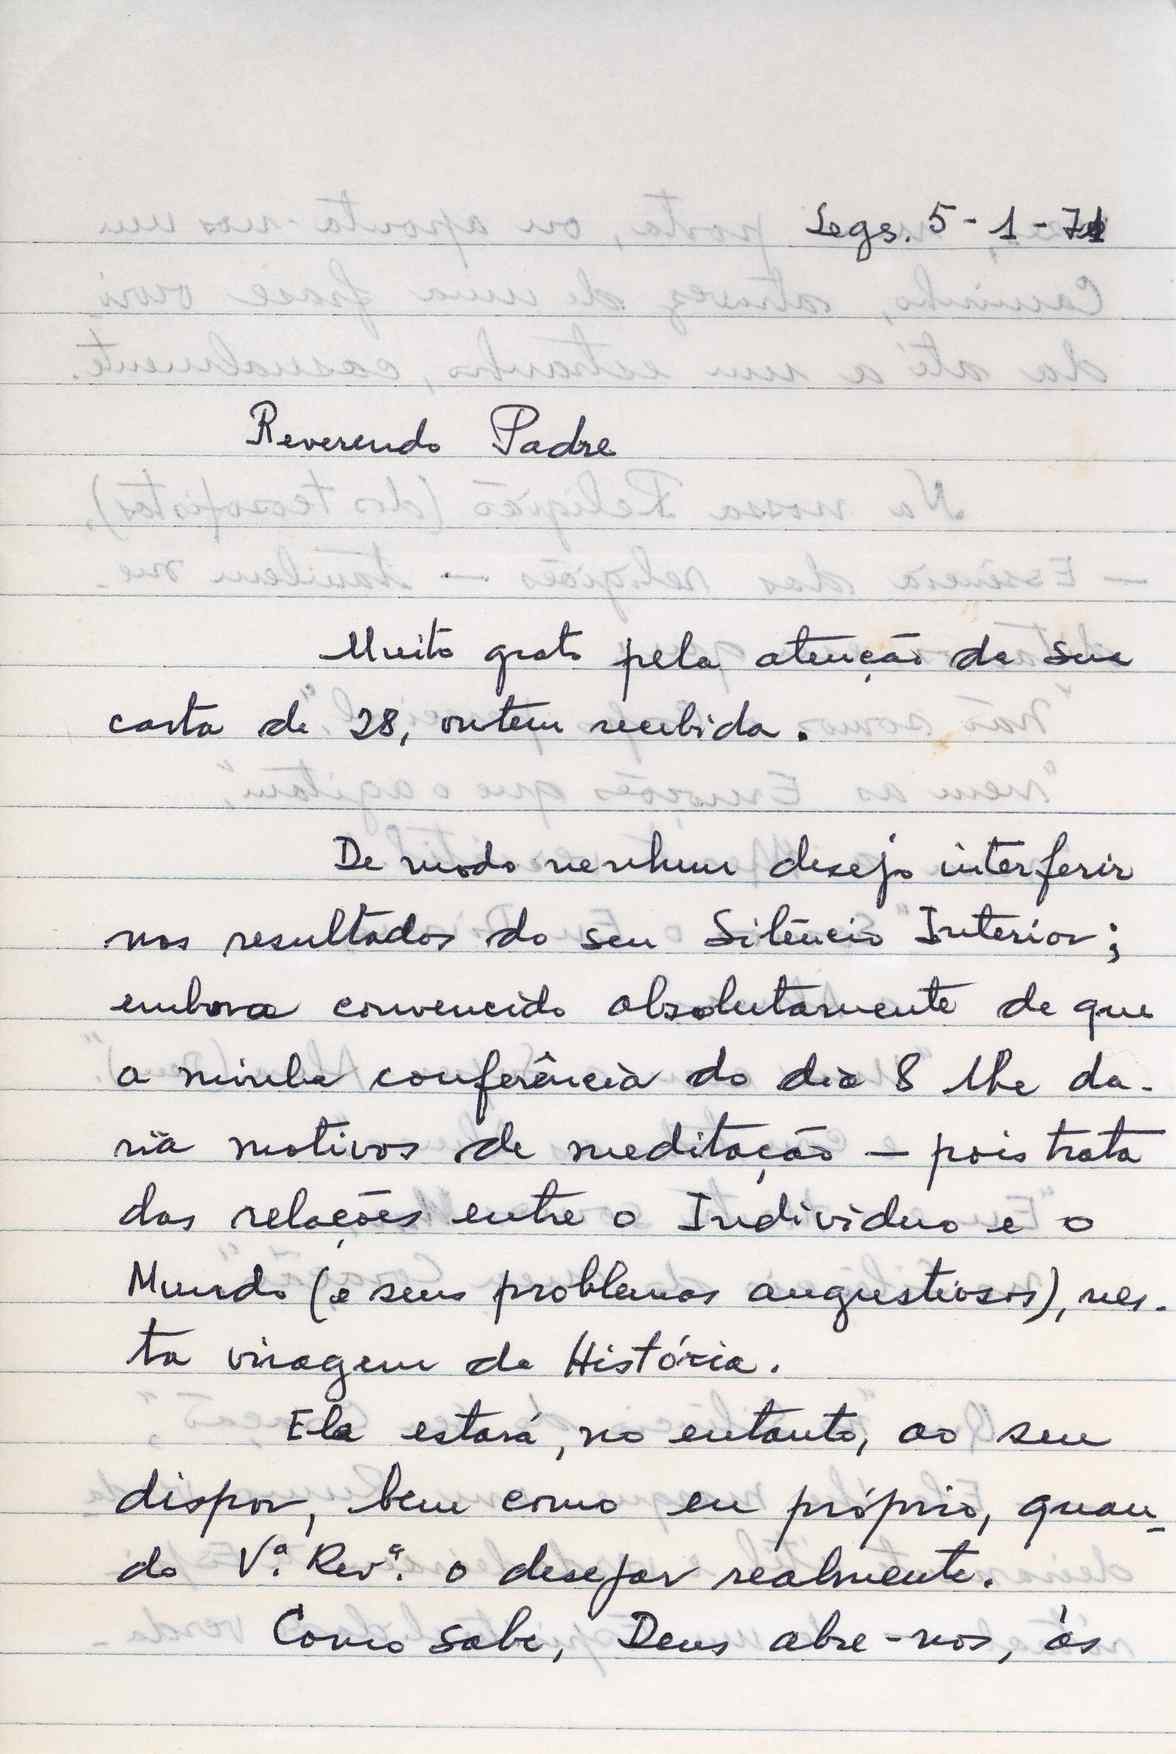 Segs. 5-1-71
Reverendo Padre
Muito grato pela atenção da sua
carta de 28, ontem recebida.
De modo nenhum desejo interferir
nos resultados do seu Silêncio Interior;
embora convencido absolutamente de que
a minha conferência do dia 8 lhe da-
ria motivos de meditação — pois trata
das relações entre o Individuo e o
Mundo (e seus problemas angustiosos), nes-
ta viragem da História.
Ela estará, no entanto, ao seu
dispor, bem como eu próprio, quan-
do V.ª Rev.ª o desejar realmente.
Como sabe, Deus abre-nos, ás